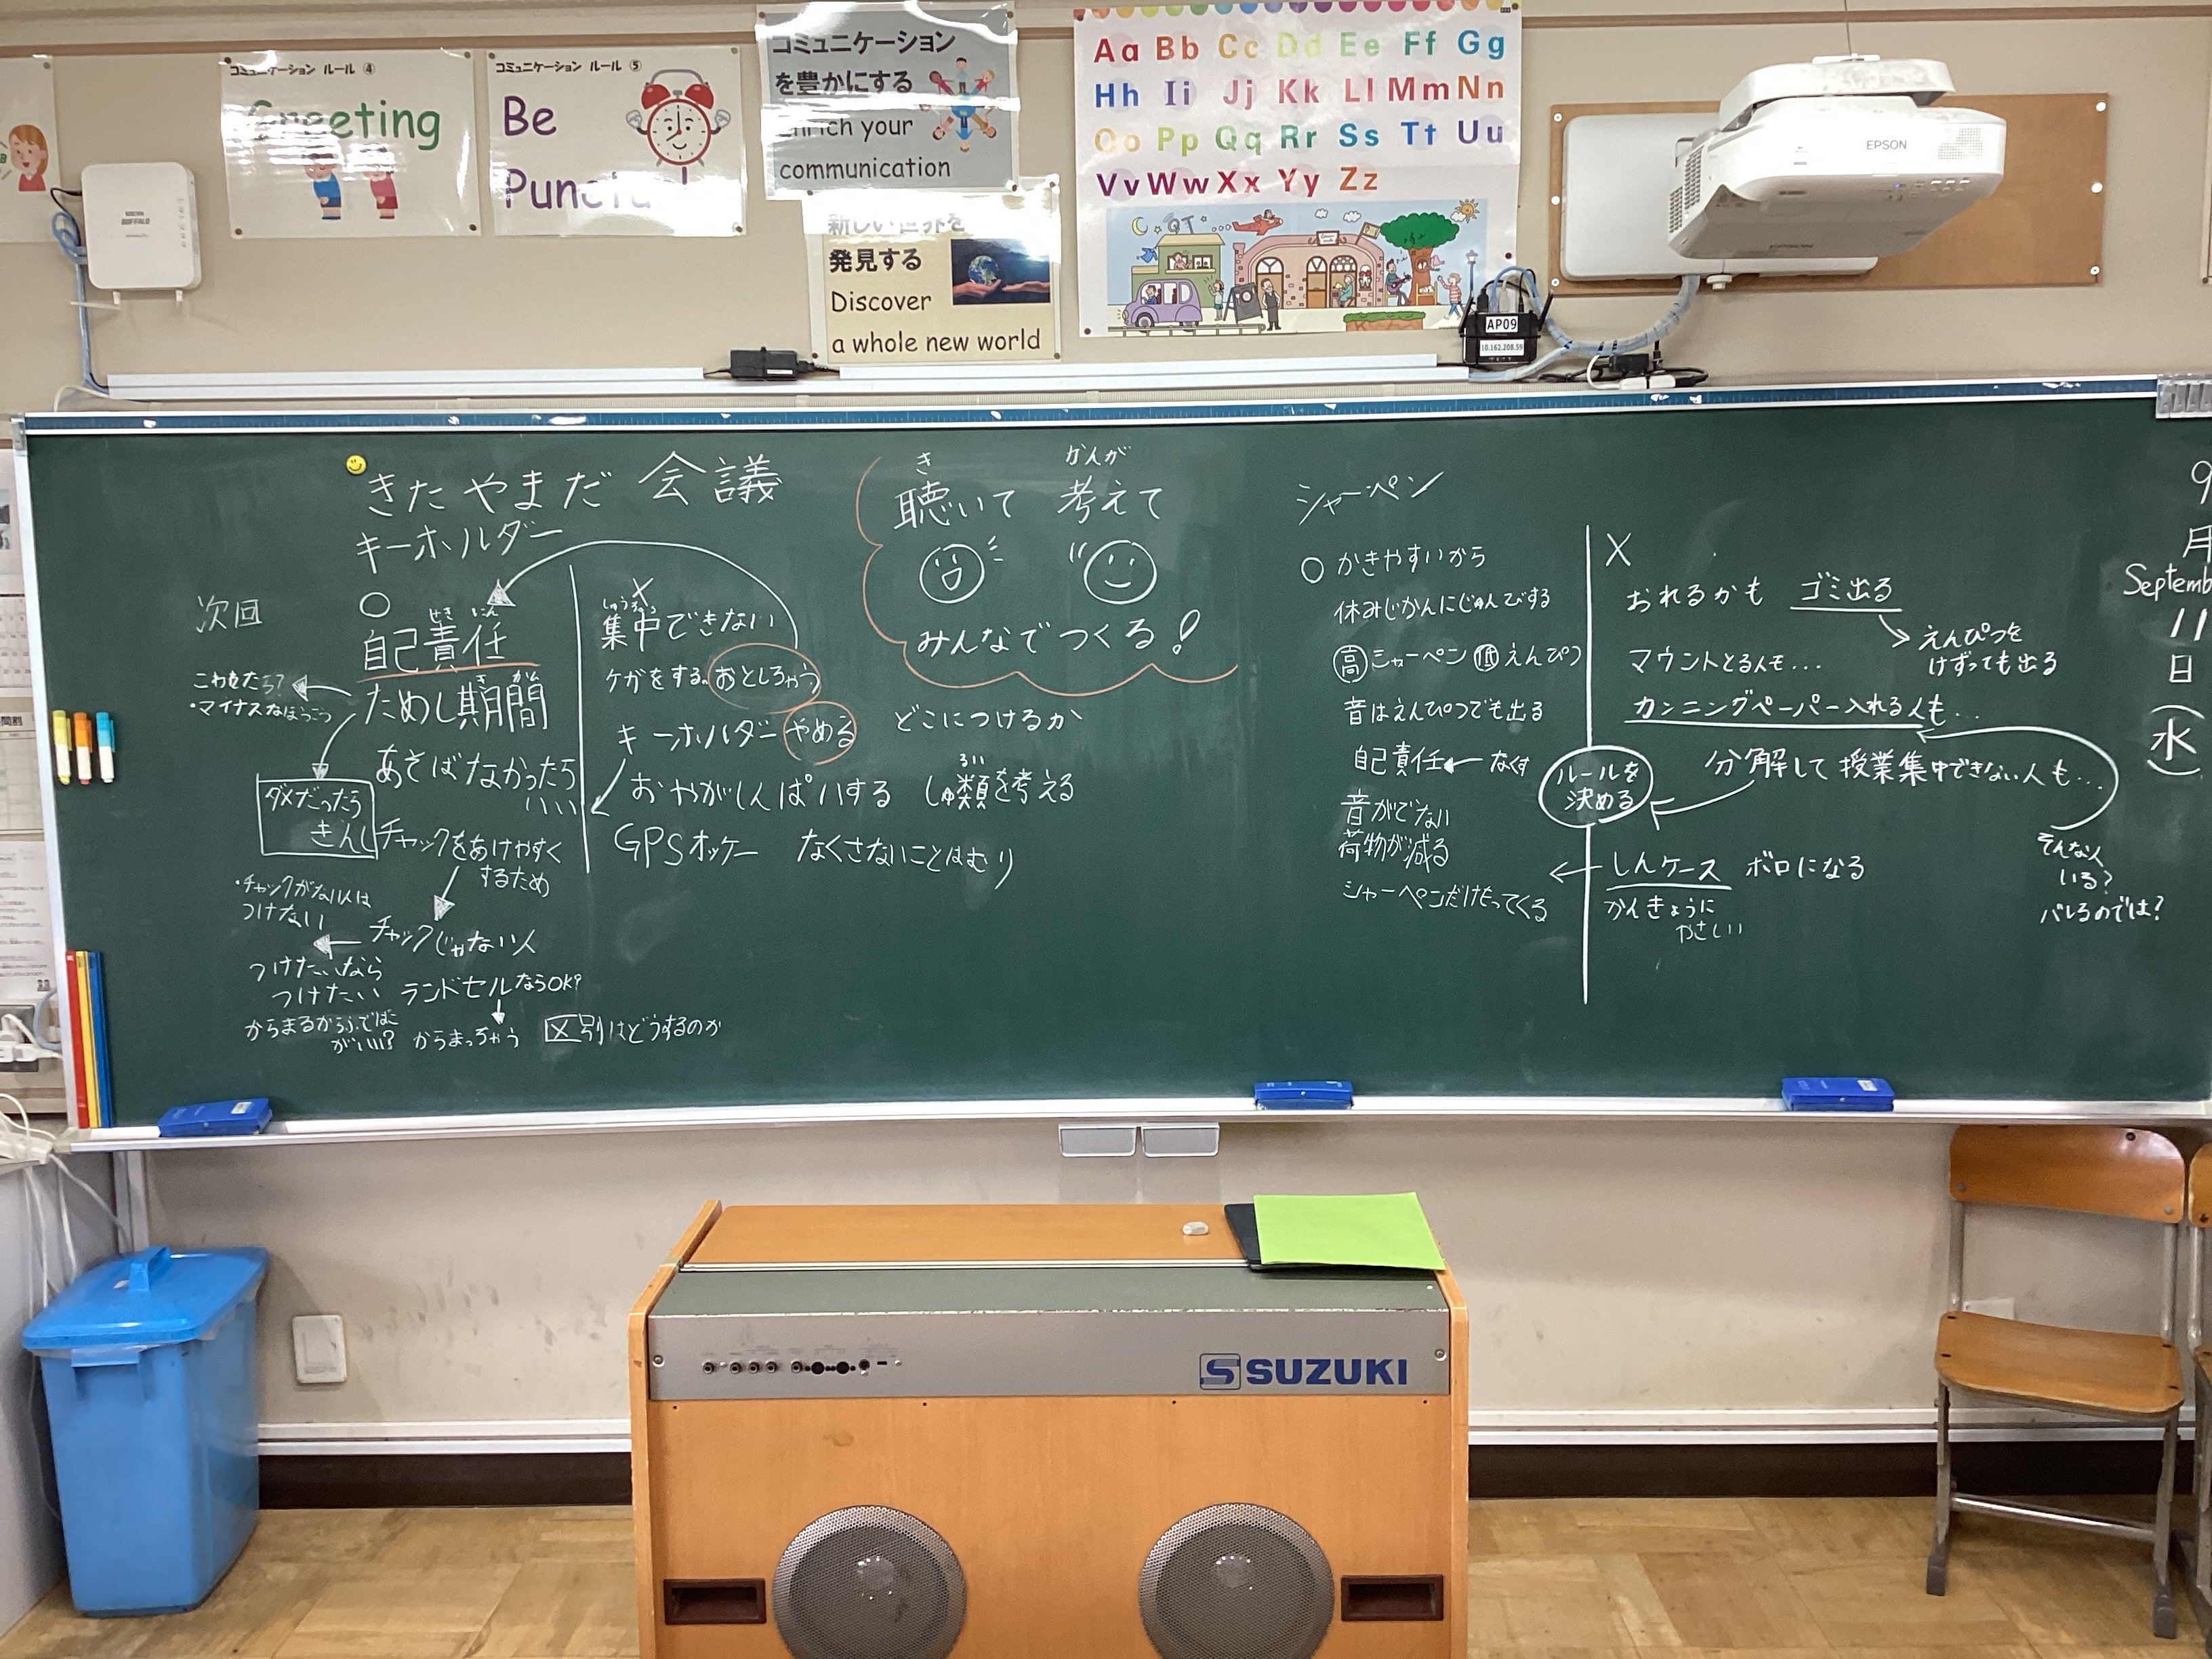 コミュニケーション ルール ④
Greeting
コミュニケーション ルール ⑤
Be
コミュニケーション
を豊かにする
Enrich your
communication
新しい世界を
発見する
Discover
a whole new world
Aa Bb Cc Dd Ee Ff Gg
Hh Ii Jj Kk Ll Mm Nn
Oo Pp Qq Rr Ss Tt Uu
Vv Ww Xx Yy Zz
EPSON
AP09
10.162.208.59
きたやまだ 会議
キーホルダー
次回
○
せきにん
自己責任
こわれたら?
・マイナスなほうこう
きかん
ためし期間
あそばなかったら
いい
ダメだったら
きんし
チャックをあけやすく
するため
・チャックがない人は
つけない
チャックじゃない人
つけたいなら
つけたい
ランドセルならOK?
からまるからふでばこ
がいい?
からまっちゃう
区別はどうするのか
×
しゅうちゅう
集中できない
ケガをする。おとしちゃう
キーホルダーやめる
おやがしんぱいする
GPSオッケー
なくさないことはむり
どこにつけるか
るい
しゅ類を考える
き
かんが
聴いて 考えて
みんなでつくる!
シャーペン
○ かきやすいから
休みじかんにじゅんびする
高シャーペン 低えんぴつ
音はえんぴつでも出る
自己責任←なくす
音がでない
荷物が減る
シャーペンだけもってくる
×
おれるかも ゴミ出る
えんぴつを
けずっても出る
マウントとる人も...
カンニングペーパー入れる人も...
分解して授業集中できない人も...
ルールを
決める
しんケース ボロになる
かんきょうに
やさしい
そんな人
いる?
バレるのでは?
9
月
Septemb
11
日
(水)
SUZUKI